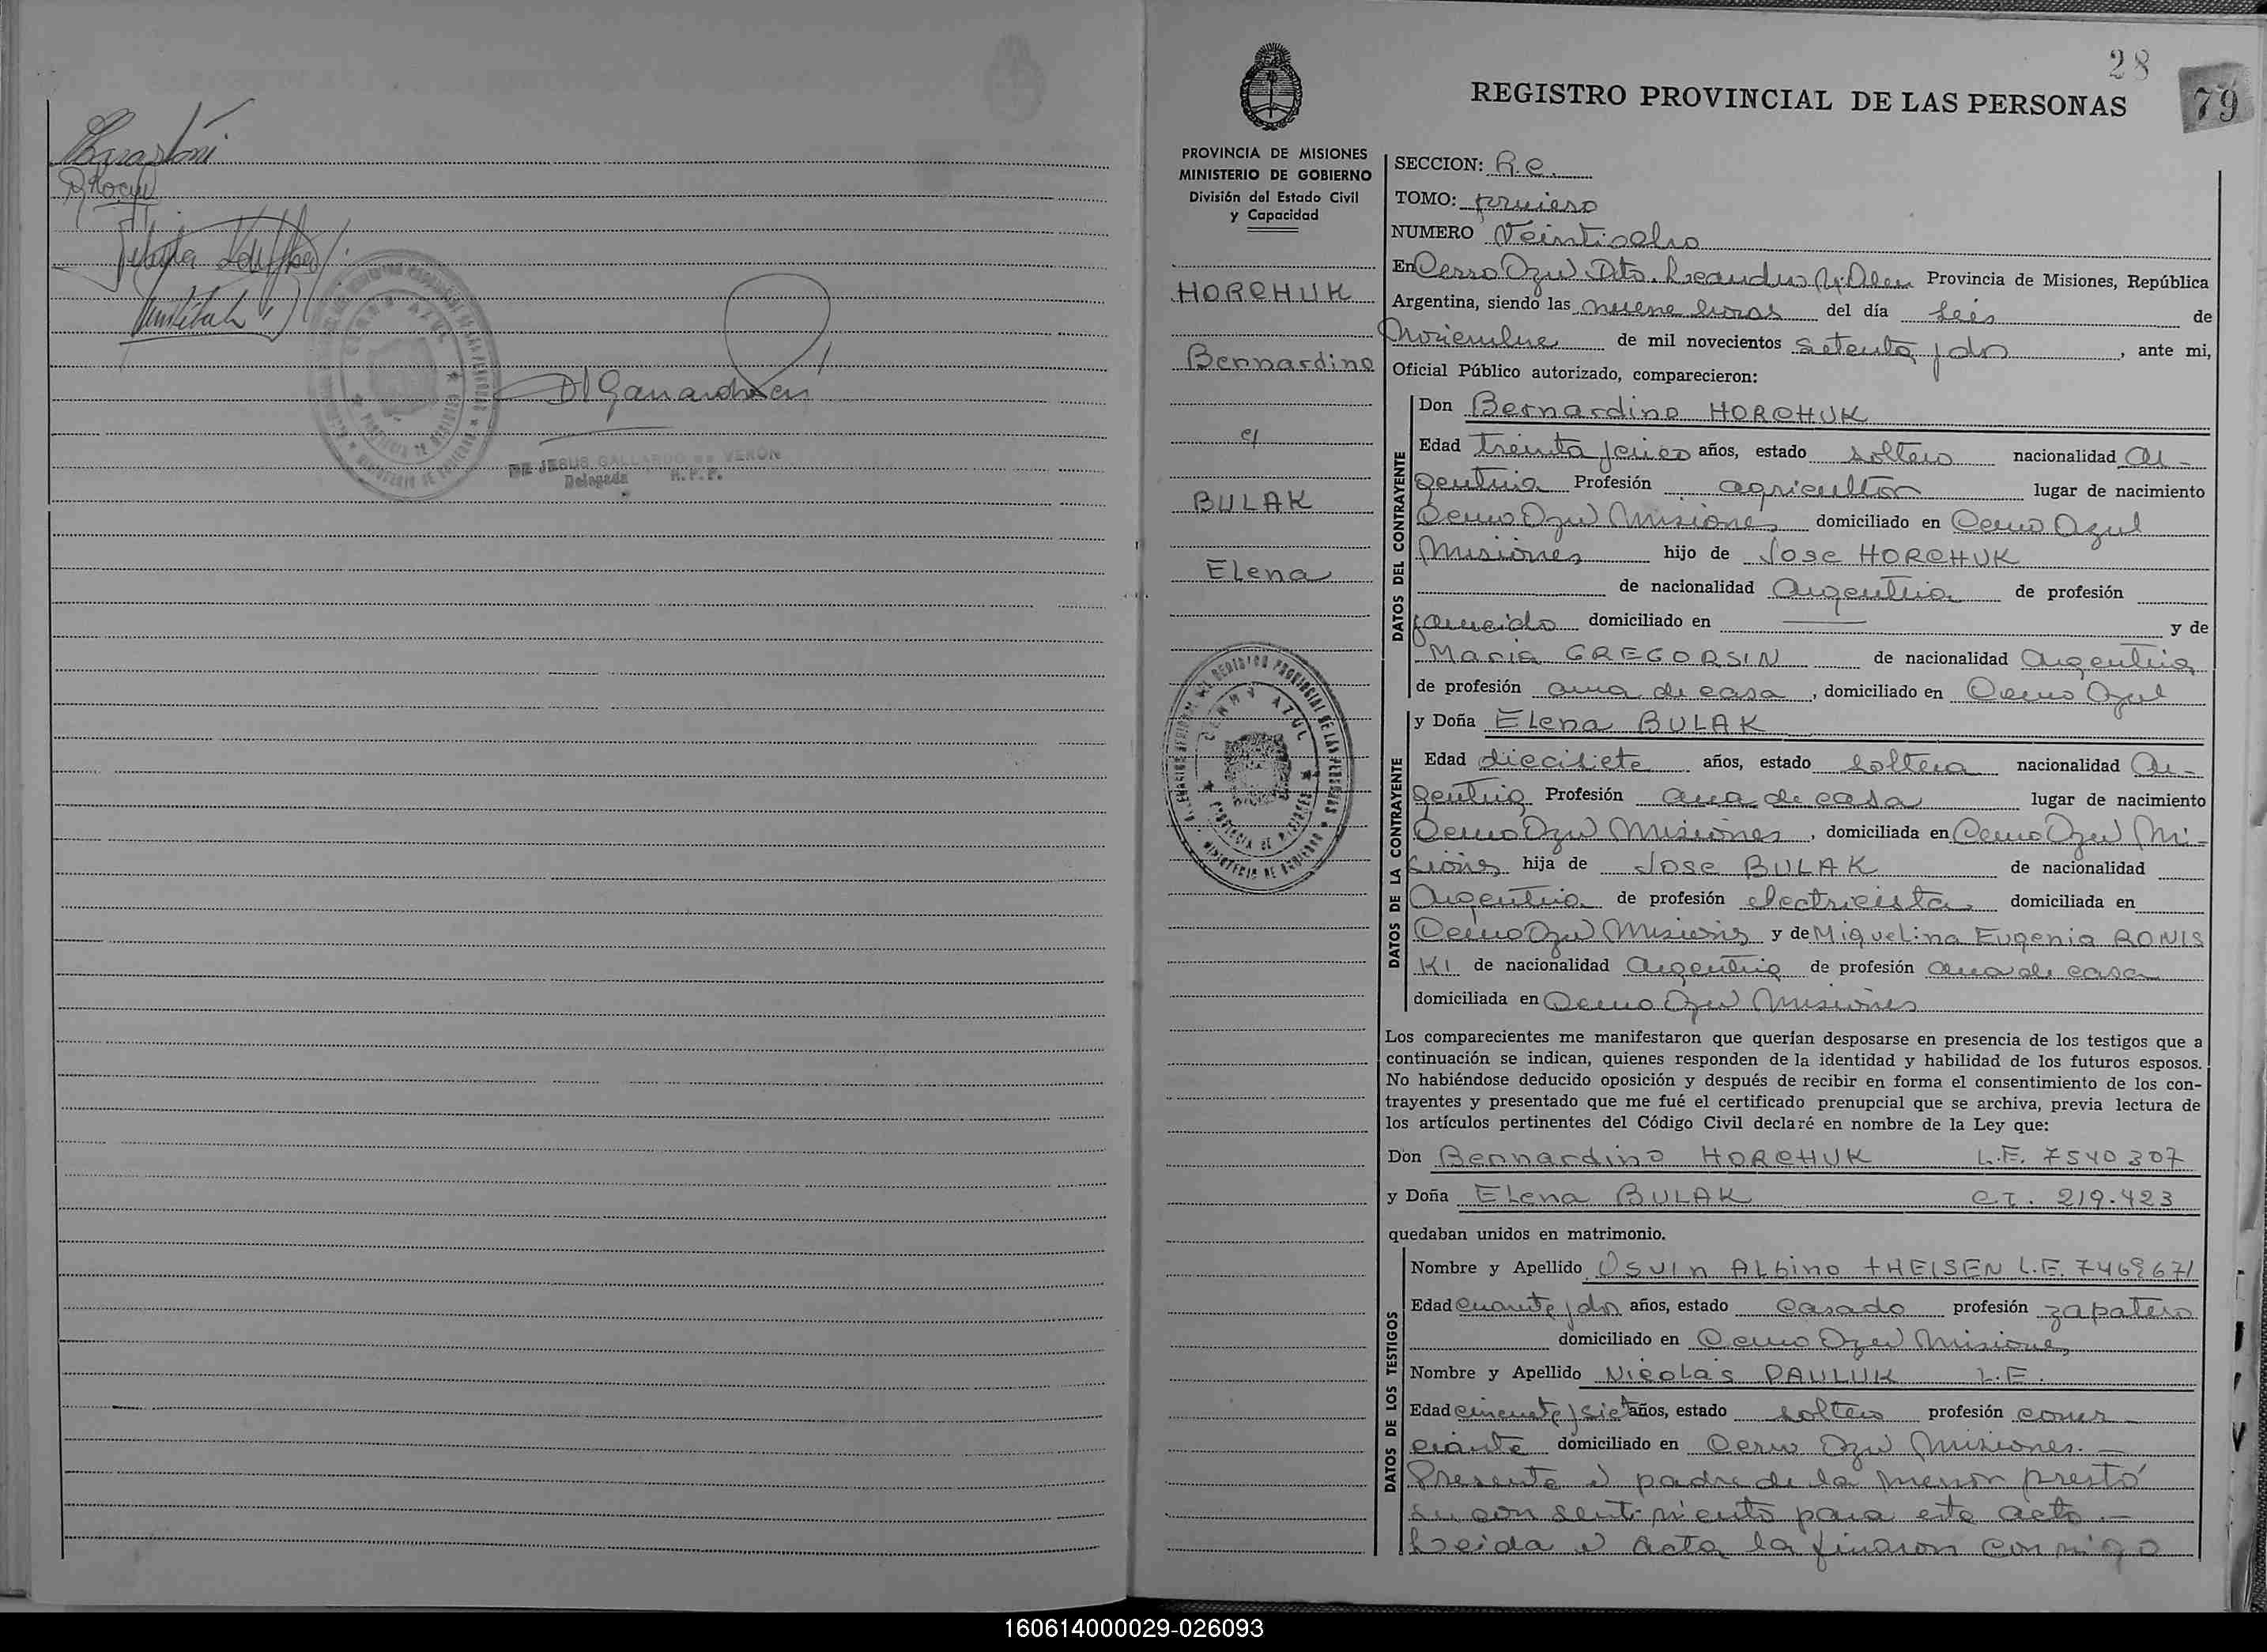 DE JESUS GALLARDO DE VERON
Delegada R.P.P.
28
79
REGISTRO PROVINCIAL DE LAS PERSONAS
PROVINCIA DE MISIONES
MINISTERIO DE GOBIERNO
División del Estado Civil
y Capacidad
HORCHUK
Bernardino
c/
BULAK
Elena
SECCION: R.C.
TOMO: primero
NUMERO Veintiocho
En Cerro Azul Dto. Leandro N. Alem Provincia de Misiones, República
Argentina, siendo las nueve horas del día seis de
Noviembre de mil novecientos setenta y dos, ante mi,
Oficial Público autorizado, comparecieron:
DATOS DEL CONTRAYENTE
Don Bernardino HORCHUK
Edad treinta y cinco años, estado soltero nacionalidad Ar-
gentina Profesión agricultor lugar de nacimiento
Cerro Azul Misiones domiciliado en Cerro Azul
Misiones hijo de Jose HORCHUK
de nacionalidad Argentina de profesión
fallecido domiciliado en —— y de
Maria GREGORSIN de nacionalidad Argentina
de profesión ama de casa, domiciliado en Cerro Azul
DATOS DE LA CONTRAYENTE
y Doña Elena BULAK
Edad diecisiete años, estado soltera nacionalidad Ar-
gentina Profesión ama de casa lugar de nacimiento
Cerro Azul Misiones, domiciliada en Cerro Azul Mi-
siones hija de Jose BULAK de nacionalidad
Argentina de profesión electricista domiciliada en
Cerro Azul Misiones y de Miguelina Eugenia RONIS
KI de nacionalidad Argentina de profesión ama de casa
domiciliada en Cerro Azul Misiones
Los comparecientes me manifestaron que querían desposarse en presencia de los testigos que a
continuación se indican, quienes responden de la identidad y habilidad de los futuros esposos.
No habiéndose deducido oposición y después de recibir en forma el consentimiento de los con-
trayentes y presentado que me fué el certificado prenupcial que se archiva, previa lectura de
los artículos pertinentes del Código Civil declaré en nombre de la Ley que:
Don Bernardino HORCHUK L.E. 7540307
y Doña Elena BULAK C.I. 219.423
quedaban unidos en matrimonio.
DATOS DE LOS TESTIGOS
Nombre y Apellido Osvin Albino tHEISEN L.E. 7469671
Edad cuarenta y dos años, estado Casado profesión zapatero
domiciliado en Cerro Azul Misiones
Nombre y Apellido Nicolas PAULUK L.E.
Edad cincuenta y siete años, estado soltero profesión comer
ciante domiciliado en Cerro Azul Misiones.—
Presente el padre de la menor prestó
su consentimiento para este acto.—
Leida el acta la firmaron conmigo
160614000029-026093